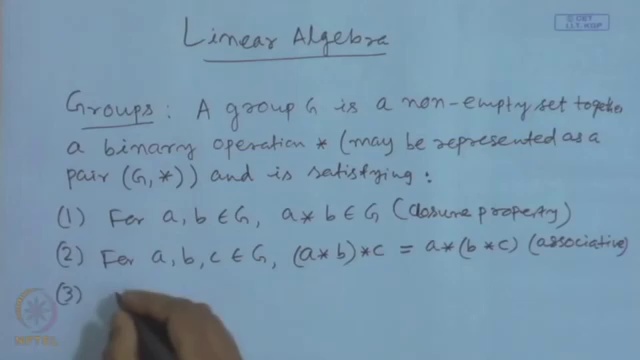 Linear Algebra
© CET
I.I.T. KGP
Groups : A group G is a non-empty set together
a binary operation * (may be represented as a
pair (G, *)) and is satisfying :
(1) For a, b ∈ G, a * b ∈ G (closure property)
(2) For a, b, c ∈ G, (a * b) * c = a * (b * c) (associative)
(3)
NPTEL